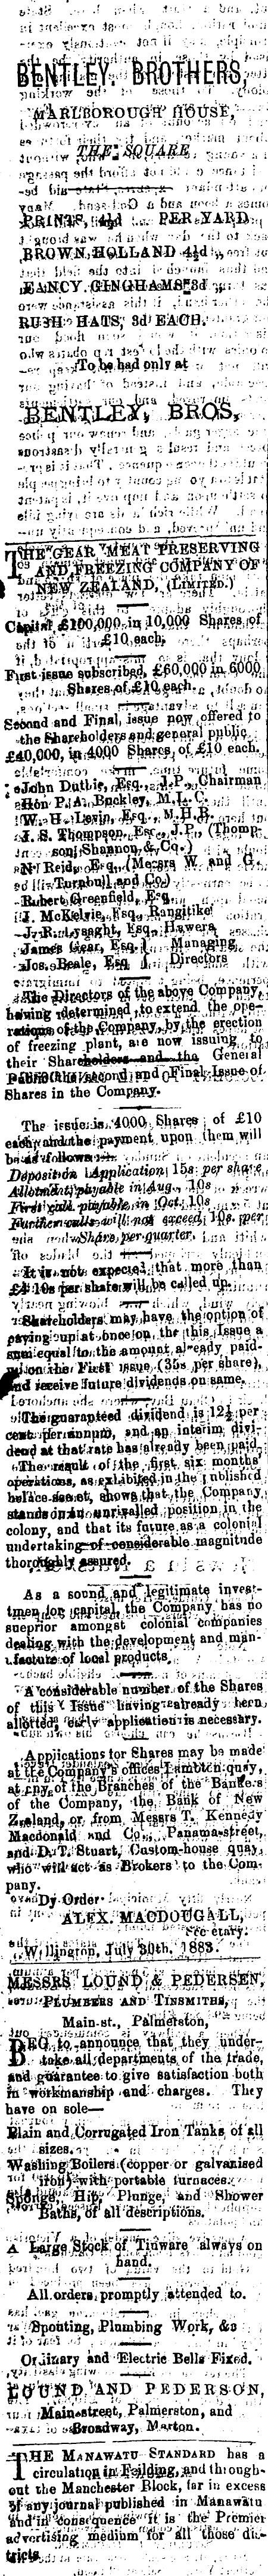 BENTLEY BROTHERS,
MARLBOROUGH HOUSE,
THE SQUARE
PRINTS, 4½d PER YARD
BROWN HOLLAND 4½d „
FANCY GINGHAMS 3d „
RUSH HATS, 3d EACH.
To be had only at
BENTLEY, BROS,
THE GEAR MEAT PRESERVING
AND FREEZING COMPANY OF
NEW ZEALAND, (LIMITED.)
Capital £100,000, in 10,000 Shares of
£10 each.
First issue subscribed, £60,000 in 6000
Shares of £10 each.
Second and Final, issue now offered to
the Shareholders and general public
£40,000, in 4000 Shares, of £10 each.
John Duthie, Esq., J.P., Chairman
Hon P. A. Buckley, M.L.C.
W. H. Levin, Esq., M.H.R.
J. S. Thompson, Esq., J.P., (Thomp
son, Shannon, & Co.)
N. Reid, Esq. (Messrs W. and G.
Turnbull and Co)
Robert Greenfield, Esq
J. McKelvie, Esq., Rangitikei
J. R. Lysaght, Esq., Hawera
James Gear, Esq. } Managing
Jos. Beale, Esq } Directors
The Directors of the above Company,
having determined to extend the ope-
rations of the Company by the erection
of freezing plant, are now issuing to
their Shareholders and the General
Public the second and Final Issue of
Shares in the Company.
The issue is 4000 Shares of £10
each, and the payment upon them will
be as follows:—
Deposit on Application 15s per share
Allotment, payable in Aug. 10s
First call payable in Oct. 10s
Further calls will not exceed 10s. per
Share, per quarter.
It is not expected that more than
£4 10s per share will be called up.
Shareholders may have the option of
paying up at once on the this Issue a
sum equal to the amount already paid-
up on the First Issue (35s per share),
and receive future dividends on same.
The guaranteed dividend is 12½ per
cent per annum, and an interim divi-
dend at that rate has already been paid.
The result of the first six months'
operations, as exhibited in the published
balace-seeet, shows that the Company
stands in an unrivalled position in the
colony, and that its future as a colonial
undertaking of considerable magnitude
thoroughly assured.
As a sound and legitimate invest-
tmen for capital the Company has no
sueprior amongst colonial companies
dealing with the development and man-
ufacture of local products.
A considerable number of the Shares
of this Issue having already been
allotted, early application is necessary.
Applications for Shares may be made
at the Company's offices Lambton quay,
at any of the Branches of the Bankers
of the Company, the Bank of New
Zealand, or from Messrs T. Kennedy
Macdonald and Co., Panama-street,
and D. T. Stuart, Custom-house quay,
who will act as Brokers to the Com-
pany.
By Order
ALEX. MACDOUGALL,
Secretary.
Wellington, July 30th, 1883.
MESSRS LOUND & PEDERSEN,
PLUMBERS AND TINSMITHS,
Main-st., Palmerston,
BEG to announce that they under-
take all departments of the trade,
and guarantee to give satisfaction both
in workmanship and charges. They
have on sole—
Plain and Corrugated Iron Tanks of all
sizes.
Washing Boilers (copper or galvanised
iron) with portable furnaces.
Sponge, Hip, Plunge, and Shower
Baths, of all descriptions.
A Large Stock of Tinware always on
hand.
All orders promptly attended to.
Spouting, Plumbing Work, &c
Ordinary and Electric Bells Fixed.
LOUND AND PEDERSON,
Main-street, Palmerston, and
Broadway, Marton.
THE MANAWATU STANDARD has a
circulation in Feilding, and through-
out the Manchester Block, far in excess
of any journal published in Manawatu
and in consequence it is the Premier
advertising medium for all those dis-
tricts.